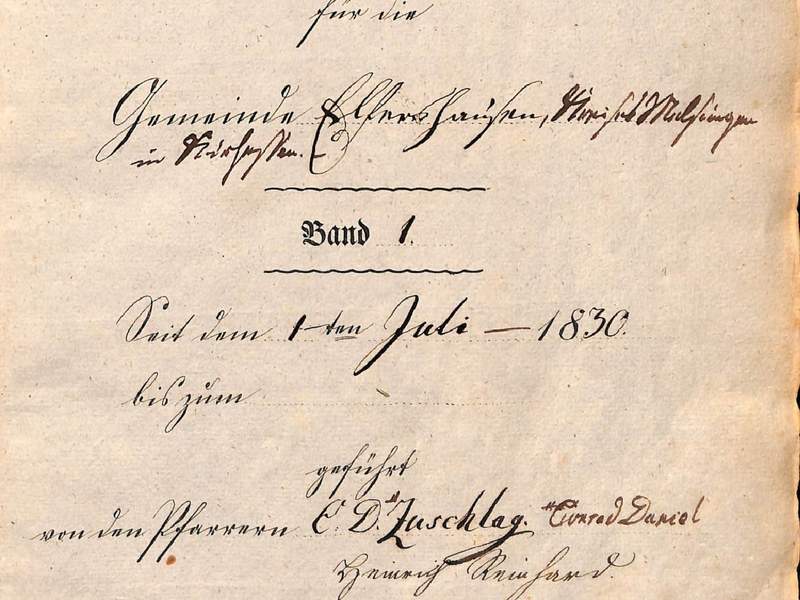 für die
Gemeinde Elfershausen, Kreises Melsungen
in Kurhessen.
Band 1.
Seit dem 1ten Juli – 1830.
bis zum
geführt
von den Pfarrern C. D. Zuschlag. Conrad Daniel
Heinrich Reinhard.